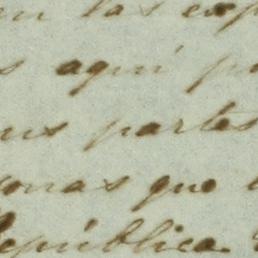 en las exp
s aqui p
us partes
onas que
República